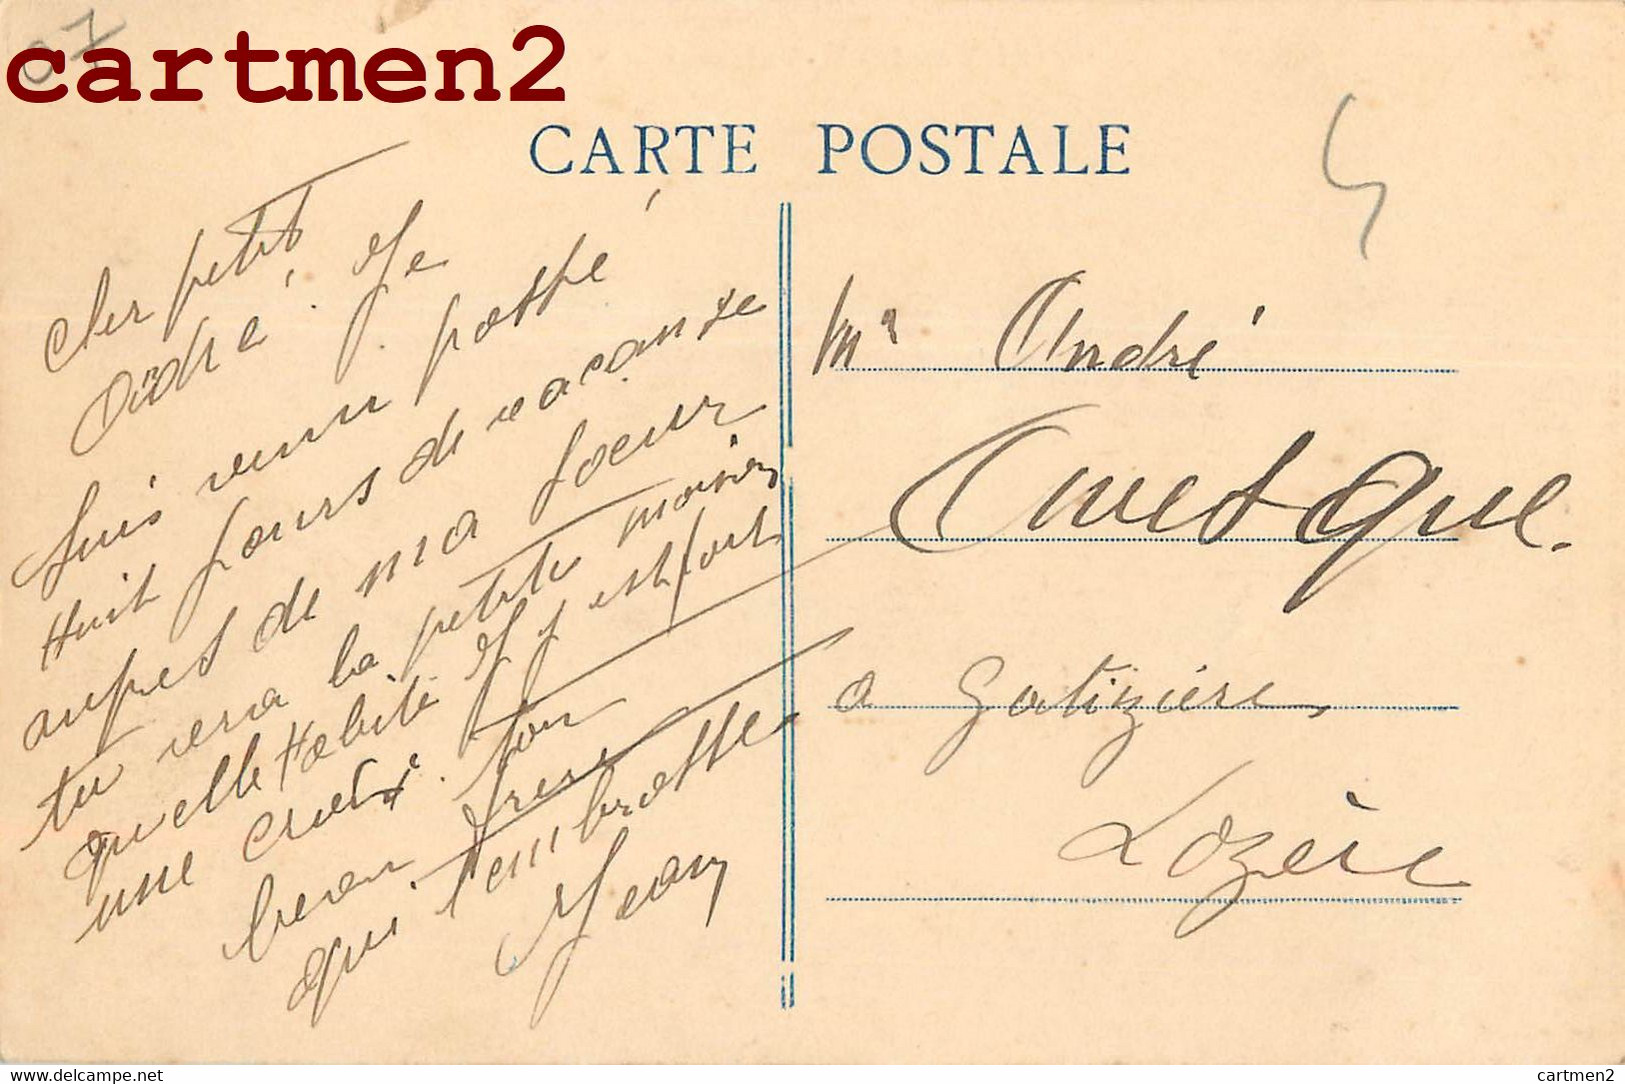 07
cartmen2
CARTE POSTALE
Cher petit
André. Je
suis venu passé
Huit Jours de vacanse
aupres de ma soeur
tu vera la petite maison
quelle Habite Il y est fait
une croix. Ton
beau frere
qui t'embrasse
Jean
Mr André
a Gatizières
Lozère
www.delcampe.net
cartmen2